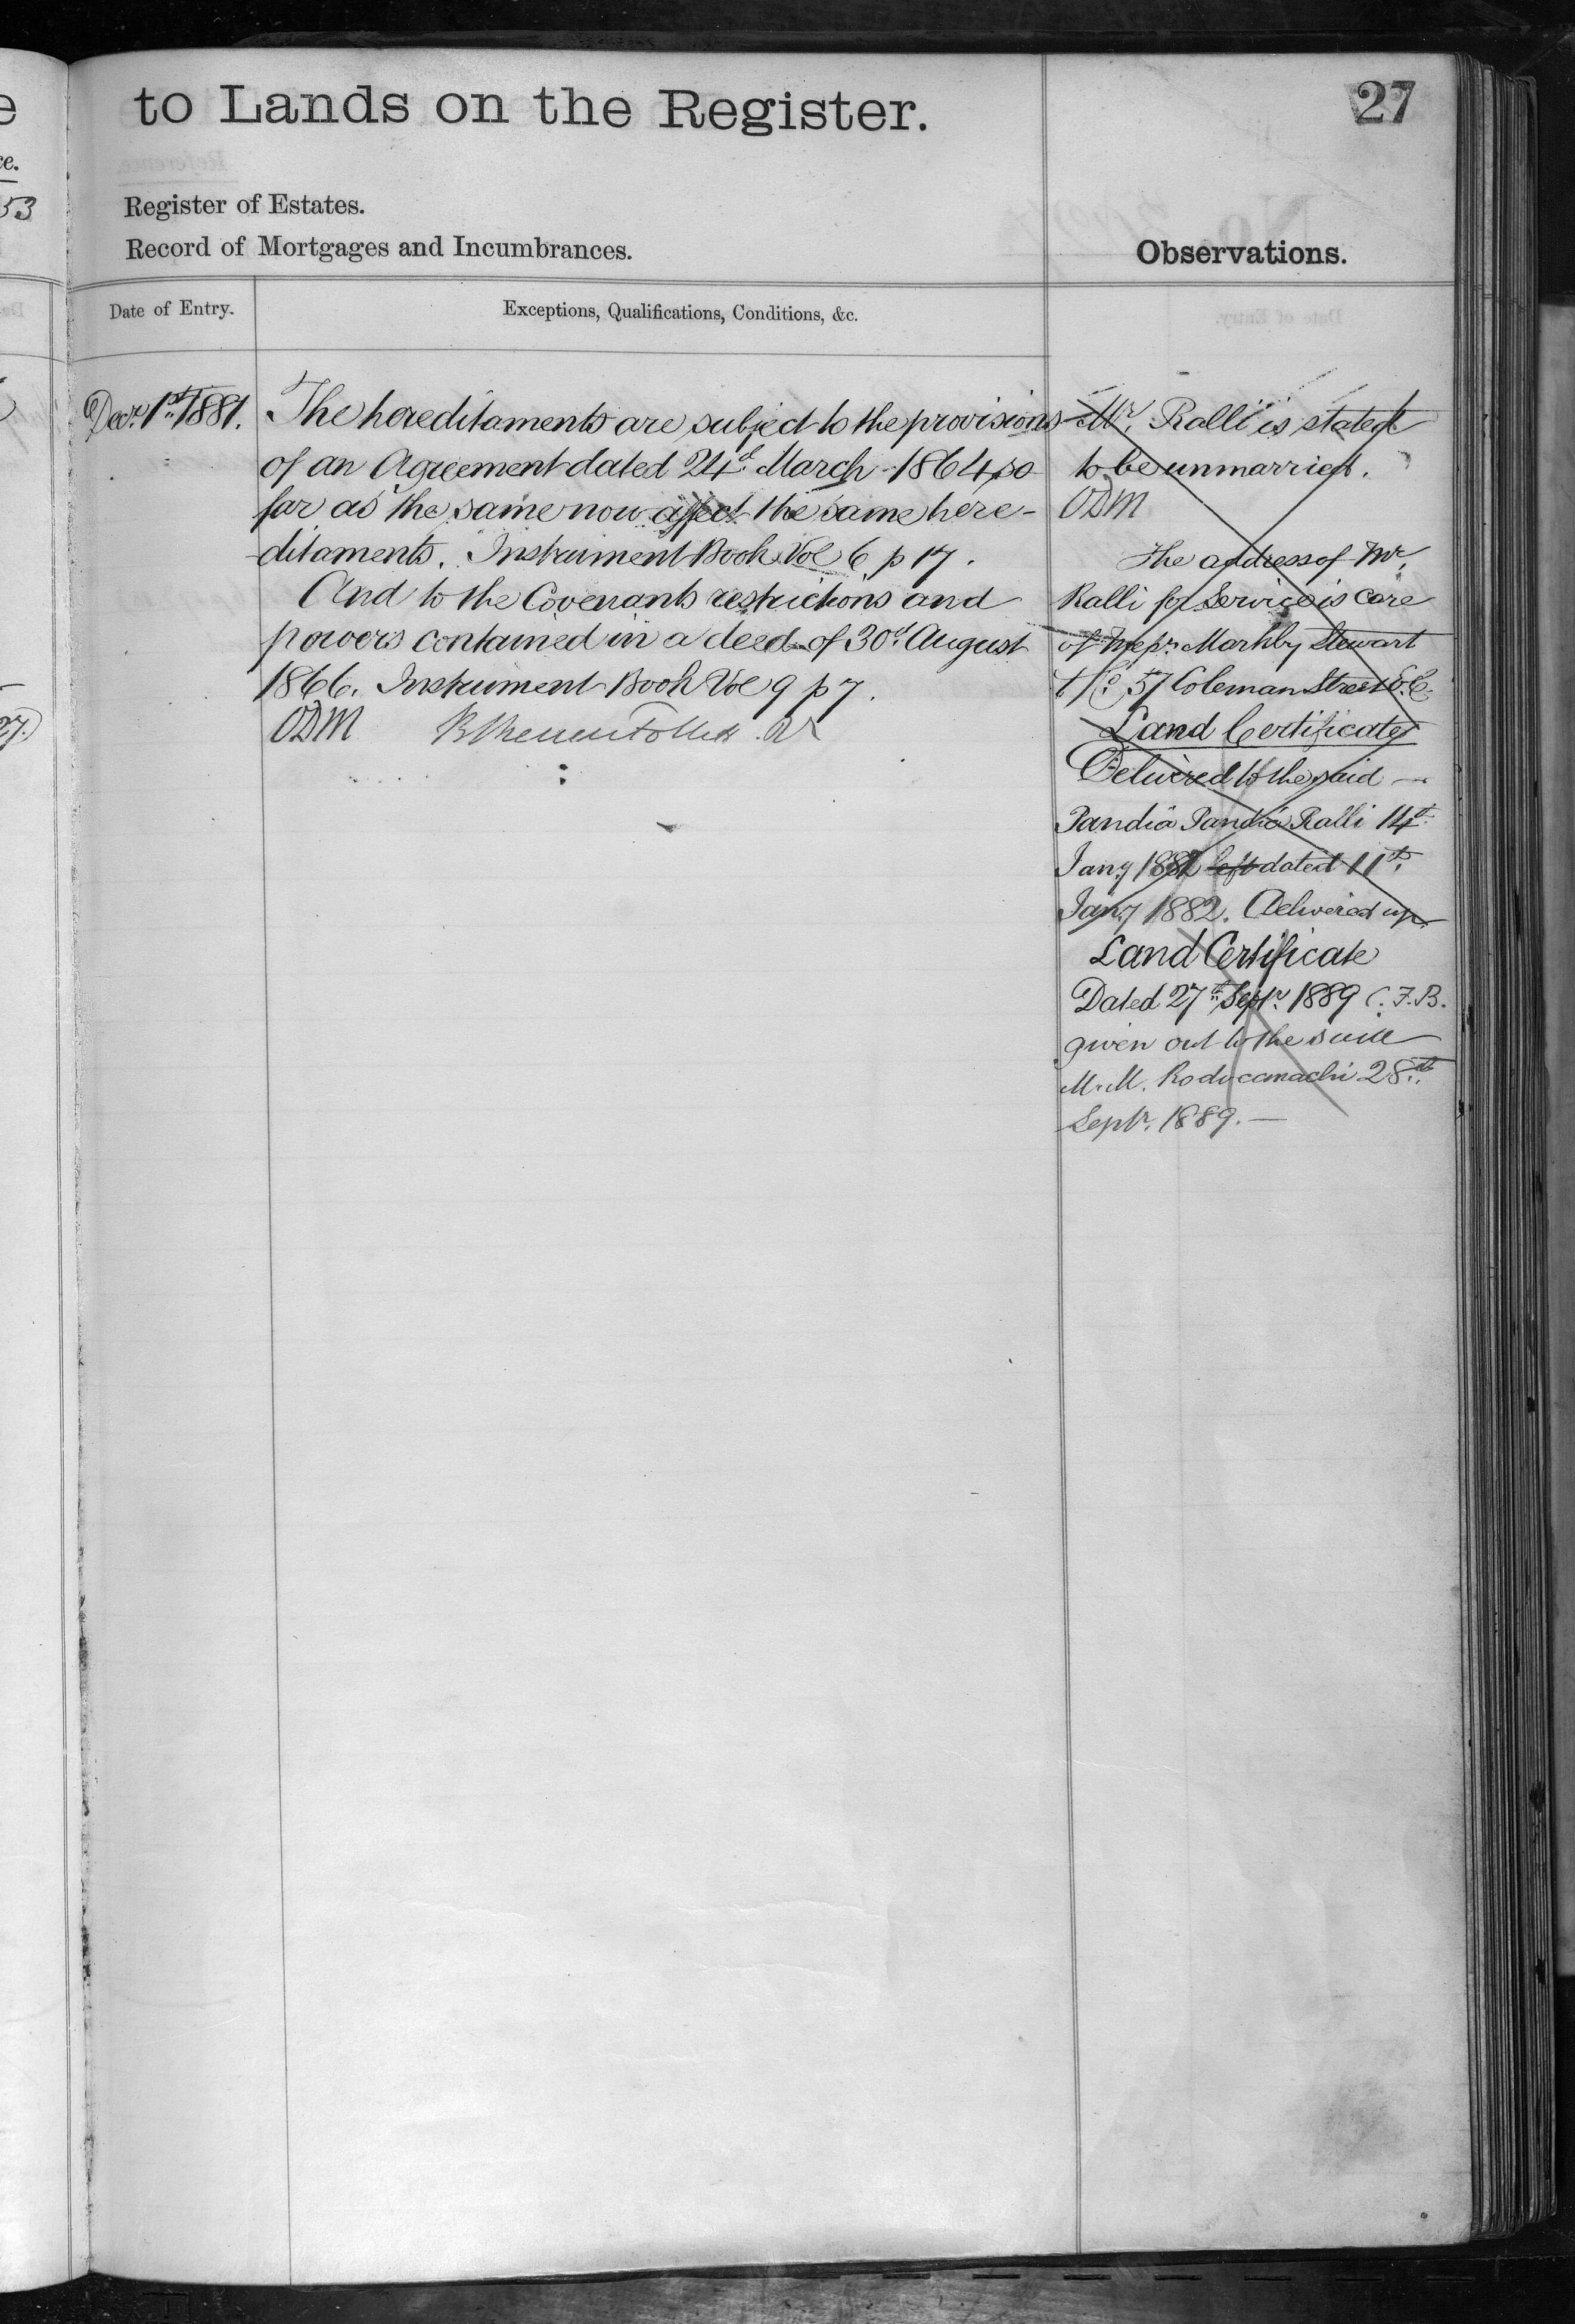 to Lands on the Register.
27
Register of Estates.
Record of Mortgages and Incumbrances.
Observations.
Date of Entry.
Exceptions, Qualifications, Conditions, &c.
Decr. 1st 1881.
The hereditaments are subject to the provisions
of an Agreement dated 24th March 1864 so
far as the same now affect the same here-
ditaments. Instrument Book Vol 6 p 17.
And to the Covenants restrictions and
powers contained in a deed of 30th August
1866. Instrument Book Vol 9 p 7.
ODM
Mr. Ralli is stated
to be unmarried.
ODM
The address of Mr.
Ralli for Service is Care
of Messrs Markby Stewart
& Co 57 Coleman Street E.C.
Land Certificate
Delivered to the said
Pandia Pandia Ralli 14th
Jany 1882 dated 11th
Jany 1882. Delivered up
Land Certificate
Dated 27th Septr. 1889 C.F.B.
given out to the said
M. M. Rodocanachi 28th
Septr. 1889.
53
27)